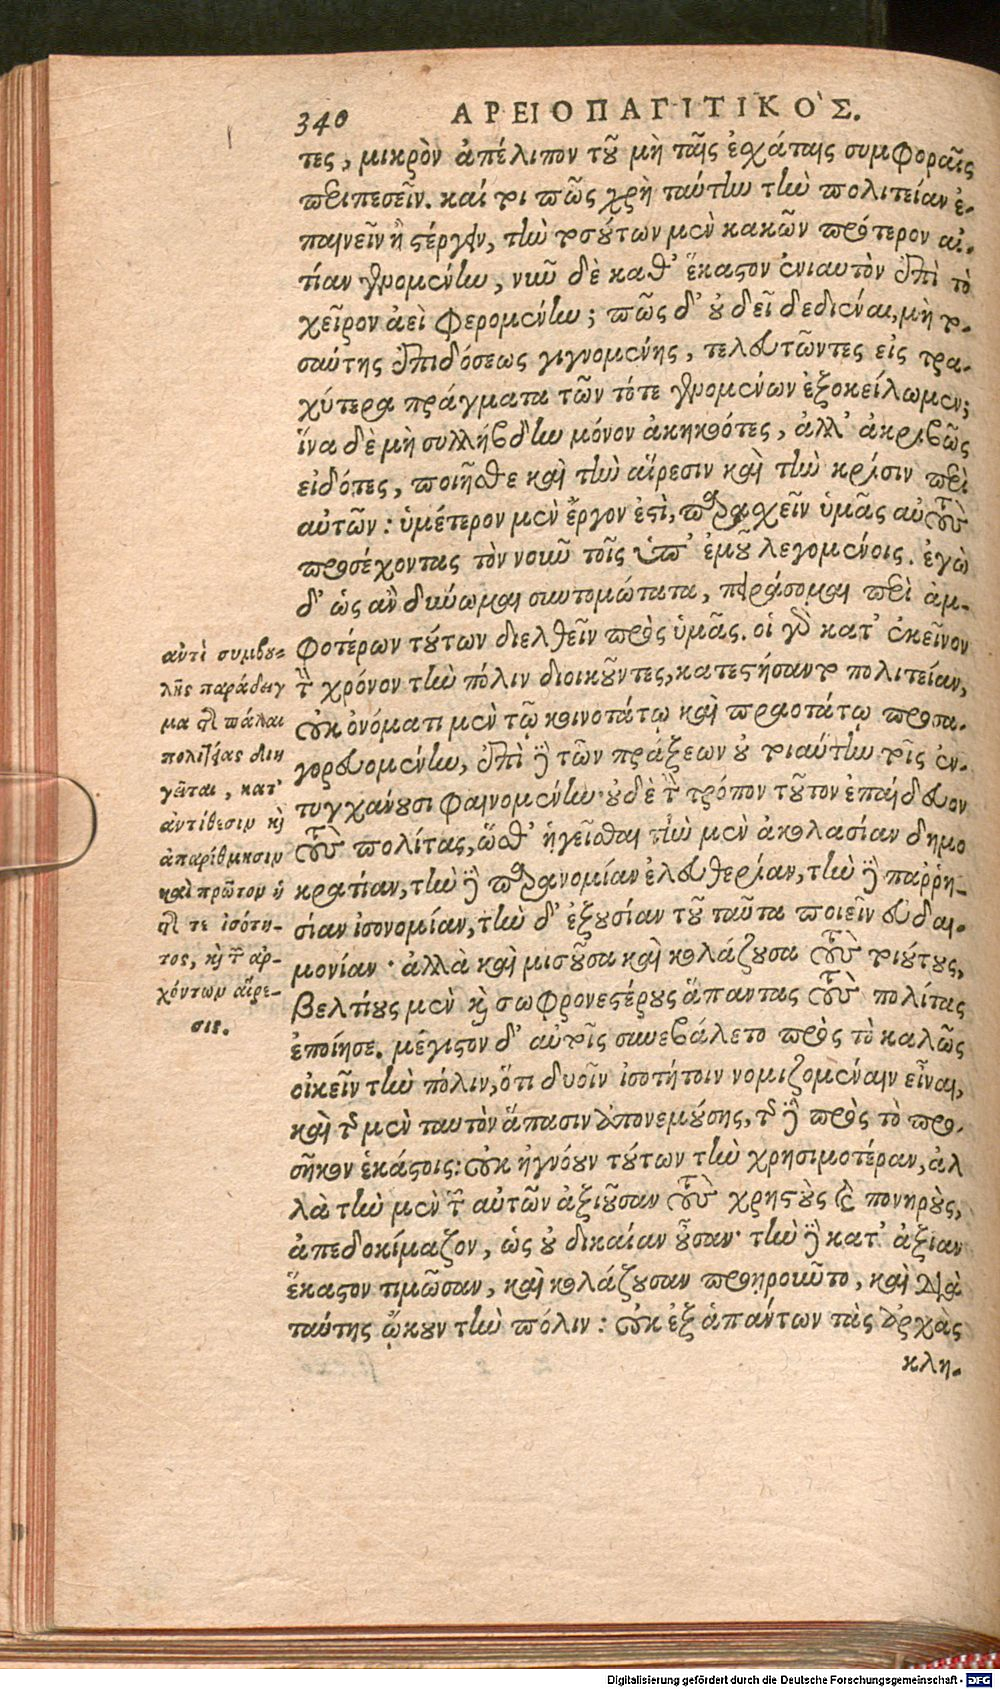 340 ΑΡΕΙΟΠΑΓΙΤΙΚΟ`Σ.
τες, μικρὸν ἀπέλιπον τοῦ μὴ ταῖς ἐσχάταις συμφοραῖς
περιπεσεῖν. καί τοι πῶς χρὴ ταύτην τὴν πολιτείαν ἐ-
παινεῖν ἢ στέργειν, τὴν τοσούτων μὲν κακῶν πρότερον αἰ-
τίαν γενομένην, νῦν δὲ καθ' ἕκαστον ἐνιαυτὸν ἐπὶ τὸ
χεῖρον ἀεὶ φερομένην; πῶς δ' οὐ δεῖ δεδιέναι, μὴ το-
σαύτης ἐπιδόσεως γιγνομένης, τελευτῶντες εἰς τρα-
χύτερα πράγματα τῶν τότε γενομένων ἐξοκείλωμεν;
ἵνα δὲ μὴ συλλήβδην μόνον ἀκηκοότες, ἀλλ' ἀκριβῶς
εἰδότες, ποιῆσθε καὶ τὴν αἵρεσιν καὶ τὴν κρίσιν περὶ
αὐτῶν: ὑμέτερον μὲν ἔργον ἐστὶ, παρασχεῖν ὑμᾶς αὐτοὺς
προσέχοντας τὸν νοῦν τοῖς ὑπ' ἐμοῦ λεγομένοις. ἐγὼ
δ' ὡς ἂν δύνωμαι συντομώτατα, πειράσομαι περὶ ἀμ-
φοτέρων τούτων διελθεῖν πρὸς ὑμᾶς. οἱ γὰρ κατ' ἐκεῖνον
τὸν χρόνον τὴν πόλιν διοικοῦντες, κατεστήσαντο πολιτείαν,
οὐκ ὀνόματι μὲν τῷ κοινοτάτῳ καὶ πραοτάτῳ προσα-
γορευομένην, ἐπὶ δὲ τῶν πράξεων οὐ τοιαύτην τοῖς ἐν-
τυγχάνουσι φαινομένην· οὐδὲ τὸν τρόπον τοῦτον ἐπαίδευον
τοὺς πολίτας, ὥσθ' ἡγεῖσθαι τὴν μὲν ἀκολασίαν δημο
κρατίαν, τὴν δὲ παρανομίαν ἐλευθερίαν, τὴν δὲ παῤῥη-
σίαν ἰσονομίαν, τὴν δ' ἐξουσίαν τοῦ ταῦτα ποιεῖν εὐδαι-
μονίαν· ἀλλὰ καὶ μισοῦσα καὶ κολάζουσα τοὺς τοιούτους,
βελτίους μὲν καὶ σωφρονεστέρους ἅπαντας τοὺς πολίτας
ἐποίησε. μέγιστον δ' αὐτοῖς συνεβάλετο πρὸς τὸ καλῶς
οἰκεῖν τὴν πόλιν, ὅτι δυοῖν ἰσοτήτοιν νομιζομέναιν εἶναι,
καὶ τῆς μὲν ταυτὸν ἅπασιν ἀπονεμούσης, τῆς δὲ πρὸς τὸ προ-
σῆκον ἑκάστοις: οὐκ ἠγνόουν τούτων τὴν χρησιμοτέραν, ἀλ
λὰ τὴν μὲν τῶν αὐτῶν ἀξιοῦσαν τοὺς χρηστοὺς καὶ πονηροὺς,
ἀπεδοκίμαζον, ὡς οὐ δικαίαν οὖσαν· τὴν δὲ κατ' ἀξίαν
ἕκαστον τιμῶσαν, καὶ κολάζουσαν προῃροῦντο, καὶ διὰ
ταύτης ᾤκουν τὴν πόλιν: οὐκ ἐξ ἁπάντων τὰς ἀρχὰς
κλη-
αὐτὶ συμβου-
λῆς παράδειγ
μα τῆς πάλαι
πολιτείας διη
γεῖται, κατ'
ἀντίθεσιν καὶ
ἀπαρίθμησιν
καὶ πρῶτον
τῆς τε ἰσότη-
τος, καὶ τῶν ἀρ-
χόντων αἵρε-
σις.
Digitalisierung gefördert durch die Deutsche Forschungsgemeinschaft - DFG